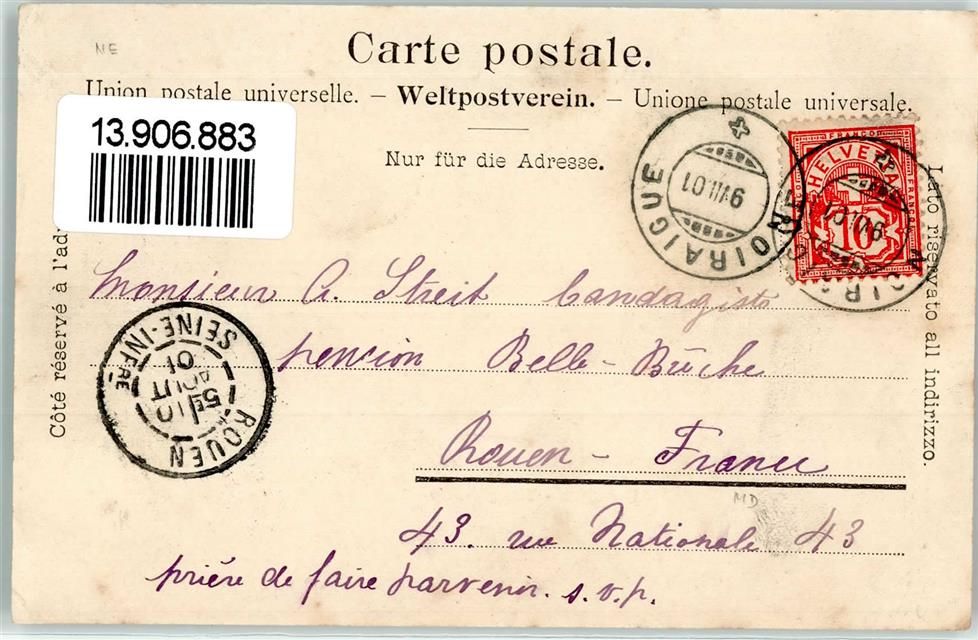 NE
Carte postale.
Union postale universelle. – Weltpostverein. – Unione postale universale.
13.906.883
Nur für die Adresse.
NOIRAIGUE
9.VII.01
FRANCO
HELVETIA
10
NOIRAIGUE
9.VII.01
Côté réservé à l'ad
Lato riservato all indirizzo.
Monsieur A. Streit bandagiste
pencion Belle-Bûche
Rouen - France
MD
43. rue Nationale 43
prière de faire parvenir. s.v.p.
ROUEN
SEINE-INFRE
5E 10
AOUT
01